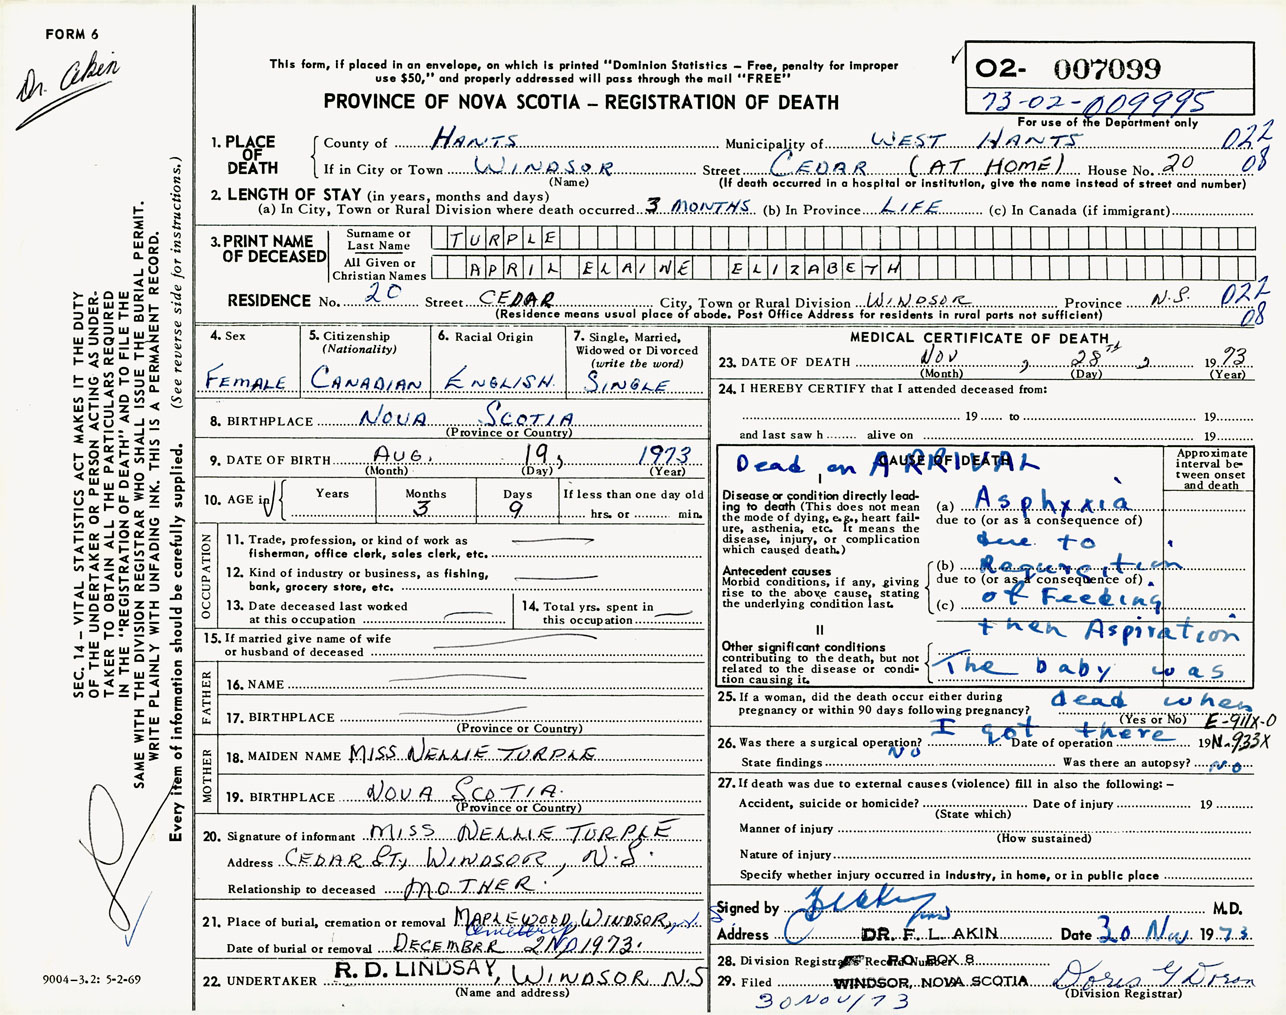 FORM 6
Dr. Akin
This form, if placed in an envelope, on which is printed "Dominion Statistics – Free, penalty for improper
use $50," and properly addressed will pass through the mail "FREE"
PROVINCE OF NOVA SCOTIA – REGISTRATION OF DEATH
02- 007099
73-02-009995
For use of the Department only
1. PLACE OF DEATH
County of HANTS Municipality of WEST HANTS 022
If in City or Town WINDSOR Street CEDAR (AT HOME) House No. 20 08
(Name) (If death occurred in a hospital or institution, give the name instead of street and number)
2. LENGTH OF STAY (in years, months and days)
(a) In City, Town or Rural Division where death occurred 3 MONTHS (b) In Province LIFE (c) In Canada (if immigrant)
3. PRINT NAME OF DECEASED
Surname or Last Name TURPLE
All Given or Christian Names APRIL ELAINE ELIZABETH
RESIDENCE No. 20 Street CEDAR City, Town or Rural Division WINDSOR Province N.S. 022
(Residence means usual place of abode. Post Office Address for residents in rural parts not sufficient) 08
4. Sex
FEMALE
5. Citizenship
(Nationality)
CANADIAN
6. Racial Origin
ENGLISH.
7. Single, Married,
Widowed or Divorced
(write the word)
SINGLE
8. BIRTHPLACE NOVA SCOTIA
(Province or Country)
9. DATE OF BIRTH AUG. 19, 1973
(Month) (Day) (Year)
10. AGE in Years Months Days If less than one day old
3 9 hrs. or min.
OCCUPATION
11. Trade, profession, or kind of work as
fisherman, office clerk, sales clerk, etc.
12. Kind of industry or business, as fishing,
bank, grocery store, etc.
13. Date deceased last worked
at this occupation
14. Total yrs. spent in
this occupation
15. If married give name of wife
or husband of deceased
FATHER
16. NAME
17. BIRTHPLACE
(Province or Country)
MOTHER
18. MAIDEN NAME MISS NELLIE TURPLE
19. BIRTHPLACE NOVA SCOTIA.
(Province or Country)
20. Signature of informant MISS NELLIE TURPLE
Address CEDAR ST., WINDSOR, N.S.
Relationship to deceased MOTHER.
21. Place of burial, cremation or removal MAPLEWOOD, WINDSOR, N.S.
Cemetery
Date of burial or removal DECEMBER 2ND 1973.
22. UNDERTAKER R. D. LINDSAY, WINDSOR N.S
(Name and address)
MEDICAL CERTIFICATE OF DEATH
23. DATE OF DEATH NOV, 28TH, 1973
(Month) (Day) (Year)
24. I HEREBY CERTIFY that I attended deceased from:
19 to 19
and last saw h alive on 19
CAUSE OF DEATH
Dead on ARRIVAL
Approximate
interval be-
tween onset
and death
I
Disease or condition directly lead-
ing to death (This does not mean
the mode of dying, e.g., heart fail-
ure, asthenia, etc. It means the
disease, injury, or complication
which caused death.)
(a) Asphyxia
due to (or as a consequence of)
due to
Antecedent causes
Morbid conditions, if any, giving
rise to the above cause, stating
the underlying condition last.
(b) Regurgitation
due to (or as a consequence of)
(c) of Feeding
then Aspiration
II
Other significant conditions
contributing to the death, but not
related to the disease or condi-
tion causing it.
The baby was
25. If a woman, did the death occur either during
pregnancy or within 90 days following pregnancy?
dead when
(Yes or No) E-911X-0
I got there
26. Was there a surgical operation? No Date of operation 19 N-933X
State findings Was there an autopsy? No
27. If death was due to external causes (violence) fill in also the following: –
Accident, suicide or homicide? Date of injury 19
(State which)
Manner of injury
(How sustained)
Nature of injury
Specify whether injury occurred in industry, in home, or in public place
Signed by M.D.
Address DR. F. L. AKIN Date 30 Nov 1973
28. Division Registrar's Record Number P.O. BOX 8
29. Filed WINDSOR, NOVA SCOTIA Doris G Doran
30 NOV/73 (Division Registrar)
SEC. 14 – VITAL STATISTICS ACT MAKES IT THE DUTY
OF THE UNDERTAKER OR PERSON ACTING AS UNDER-
TAKER TO OBTAIN ALL THE PARTICULARS REQUIRED
IN THE "REGISTRATION OF DEATH" AND TO FILE THE
SAME WITH THE DIVISION REGISTRAR WHO SHALL ISSUE THE BURIAL PERMIT.
WRITE PLAINLY WITH UNFADING INK. THIS IS A PERMANENT RECORD.
Every item of information should be carefully supplied. (See reverse side for instructions.)
9004-3.2: 5-2-69